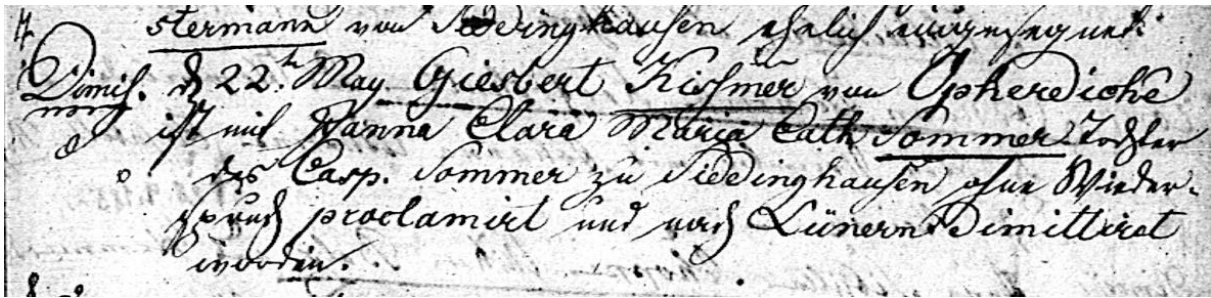 stermann von Siddinghausen ehelich eingesegnet.
Dimiss. d 22ten May Giesbert Kissmer von Opherdicke
ist mit Hanna Clara Maria Cath Sommer Tochter
des Casp. Sommer zu Siddinghausen ohne Wieder-
spruch proclamirt und nach Lünern Dimittiret
worden.